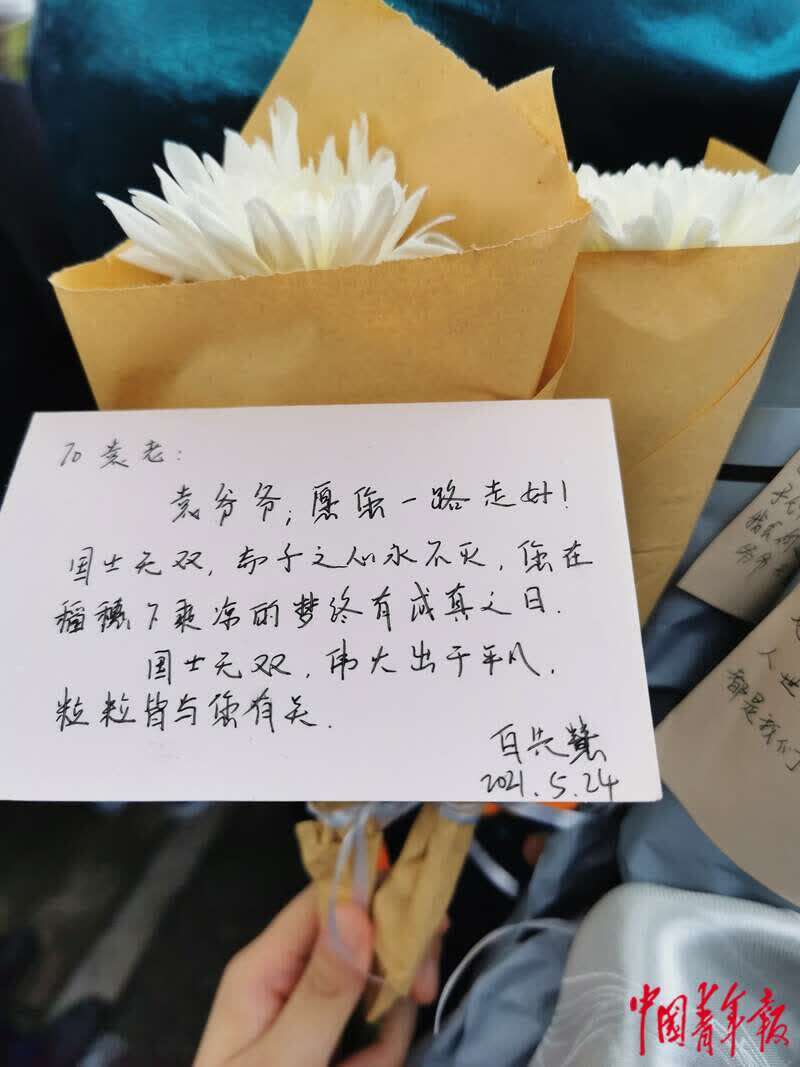 To 袁老:
袁爷爷,愿您一路走好!
国士无双, 子之心永不灭,您在
稻穗下乘凉的梦终有成真之日.
国士无双,伟大出于平凡,
粒粒皆与您有关.
2021.5.24
人世
都是我们
中国青年报